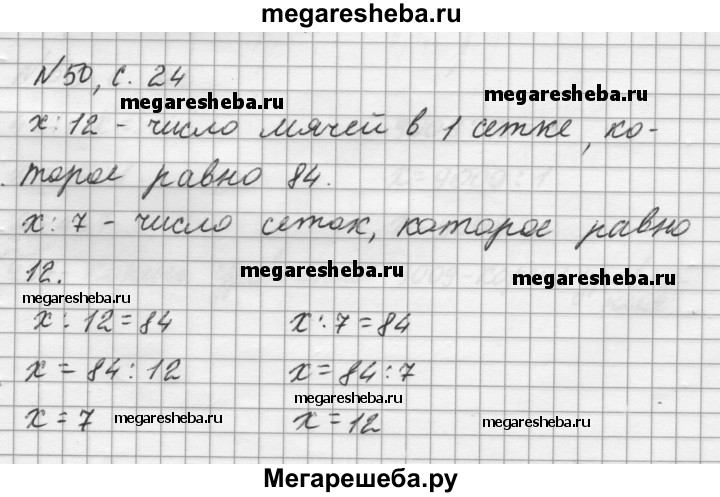 megaresheba.ru
№50, с. 24
megaresheba.ru
megaresheba.ru
x : 12 - число мячей в 1 сетке, ко-
торое равно 84.
x : 7 - число сеток, которое равно
12.
megaresheba.ru
megaresheba.ru
megaresheba.ru
x : 12 = 84 x : 7 = 84
x = 84 : 12 x = 84 : 7
megaresheba.ru
x = 7 megaresheba.ru x = 12 megaresheba.ru
Мегарешеба.ру